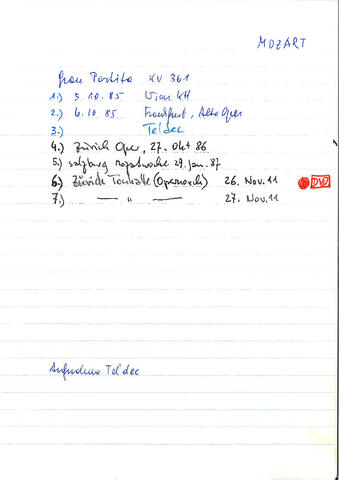 MOZART
Gran Partita KV 361
1.) 5.10.85 Wien KH
2.) 6.10.85 Frankfurt, Alte Oper
3.) Teldec
4.) Zürich Oper, 27. Okt 86
5.) Salzburg Mozartwoche 29. Jan. 87
6.) Zürich Tonhalle (Opernorch) 26. Nov. 11 DVD
7.) — " — 27. Nov. 11
Aufnahme Teldec